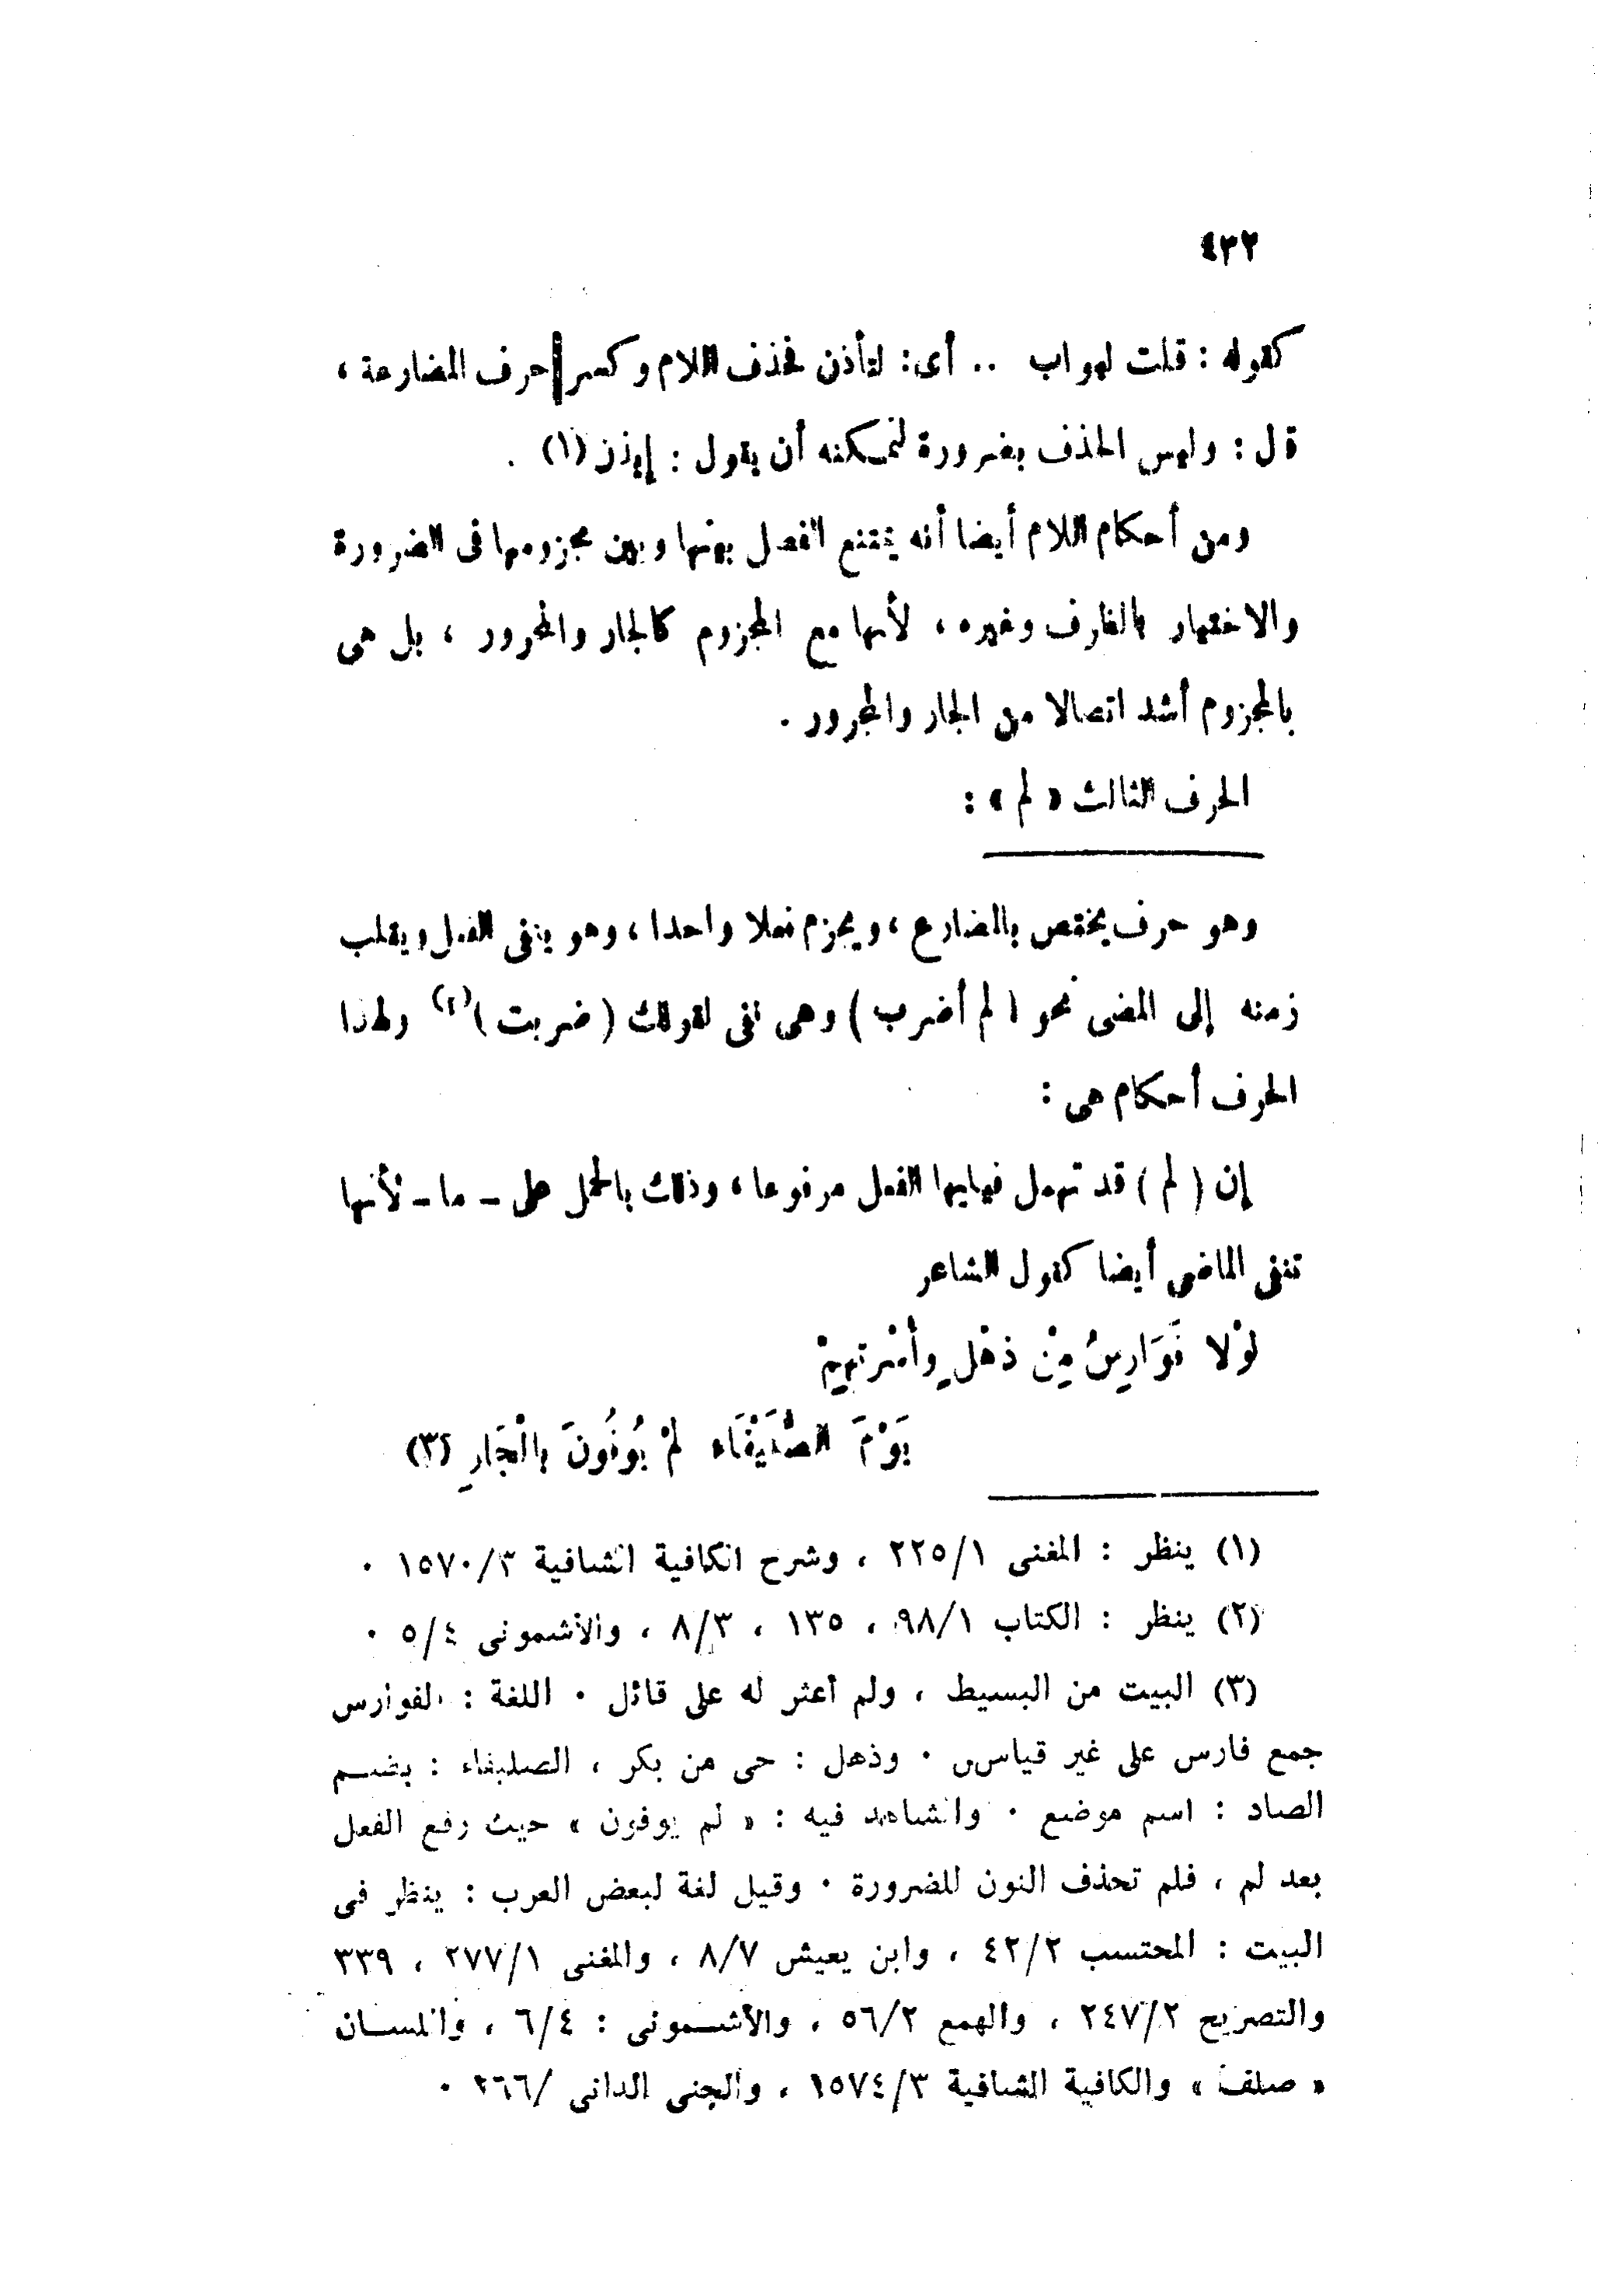 ٤٣٢
كقوله : قلت لبواب .. أى: لتأذن فحذف اللام وكسر حرف المضارعة ،
قال : وليس الحذف بضرورة لتمكنه أن يقول : إيذن (١) .
ومن أحكام اللام أيضا أنه يمتنع الفصل بينها وبين مجزومها فى الضرورة
والاختيار بالظرف وغيره ، لأنها مع المجزوم كالجار والمجرور ، بل هى
بالمجزوم أشد اتصالا من الجار والمجرور .
الحرف الثالث « لم » :
وهو حرف يختص بالمضارع ، ويجزم فعلا واحدا ، وهو ينفى الفعل ويقلب
زمنه إلى المضى نحو ( لم أضرب ) وهى نفى لقولك ( ضربت )(٢) ولهذا
الحرف أحكام هى :
إن ( لم ) قد تهمل فيليها الفعل مرفوعا ، وذلك بالحمل على – ما – لأنها
تنفى الماضى أيضا كقول الشاعر
لَوْلا فَوَارِسُ مِنْ ذهْلٍ وأسْرتهِمْ
يَوْمَ الصُّلَيْفَاء لَمْ يُوفُونَ بِالْجَارِ (٣)
(١) ينظر : المغنى ٢٢٥/١ ، وشرح الكافية الشافية ١٥٧٠/٣ .
(٢) ينظر : الكتاب ٩٨/١ ، ١٣٥ ، ٨/٣ ، والأشمونى ٥/٤ .
(٣) البيت من البسيط ، ولم أعثر له على قائل . اللغة : الفوارس
جمع فارس على غير قياس . وذهل : حى من بكر ، الصليفاء : بضم
الصاد : اسم موضع . والشاهد فيه : « لم يوفون » حيث رفع الفعل
بعد لم ، فلم تحذف النون للضرورة . وقيل لغة لبعض العرب : ينظر فى
البيت : المحتسب ٤٢/٢ ، وابن يعيش ٨/٧ ، والمغنى ٢٧٧/١ ، ٣٣٩
والتصريح ٢٤٧/٢ ، والهمع ٥٦/٢ ، والأشمونى : ٦/٤ ، واللسان
« صلف » والكافية الشافية ١٥٧٤/٣ ، والجنى الدانى /٢٦٦ .